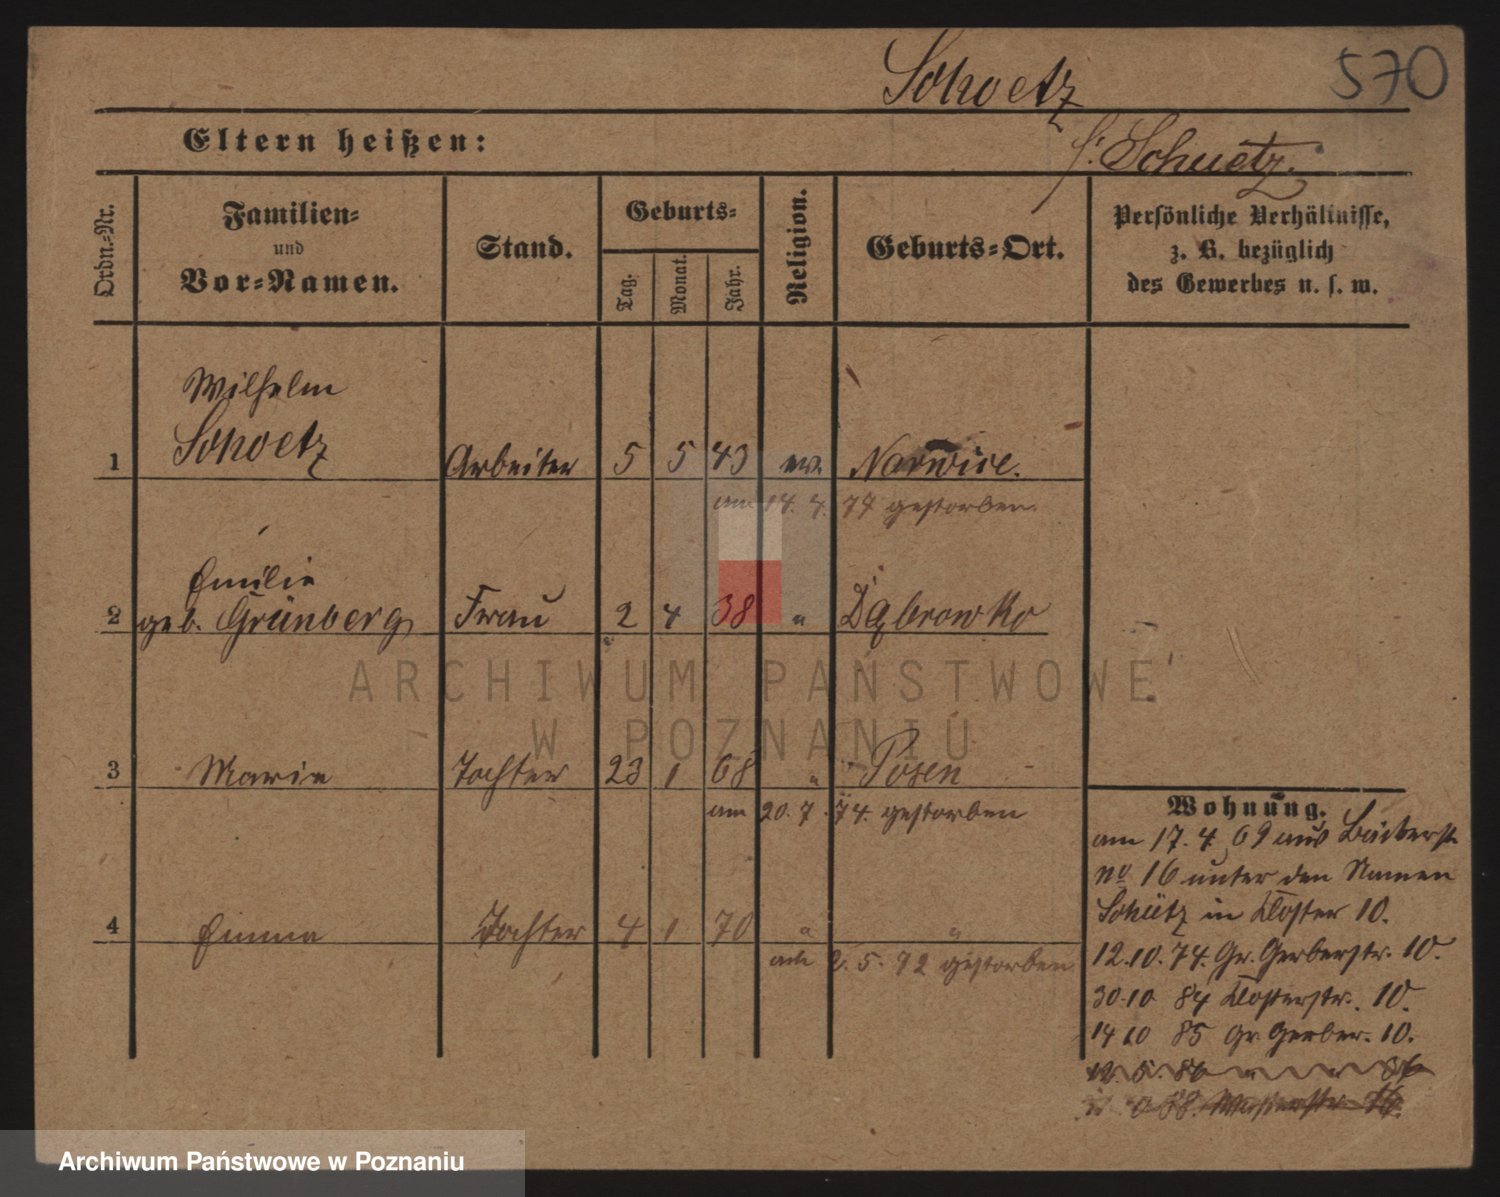 Schoetz
570
Eltern heißen:
f. Schuetz.
Ordn.-Nr.
Familien-
und
Vor-Namen.
Stand.
Geburts-
Tag.
Monat.
Jahr.
Religion.
Geburts-Ort.
Persönliche Verhältnisse,
z. B. bezüglich
des Gewerbes u. s. w.
Wilhelm
1 Schoetz Arbeiter 5 5 43 ev.
am 14. 4. 74 gestorben.
Emilie
2 geb. Grünberg Frau 2 4 38 " Dąbrowko
3 Marie Tochter 23 1 68 " Posen
am 20. 7. 74. gestorben
4 Emma Tochter 4 1 70 " "
am 2. 5. 92 gestorben
Wohnung.
am 17. 4. 69 aus Bäckerst.
no 16 unter den Namen
Schütz in Kloster 10.
12.10.74. Gr. Gerberstr. 10.
30.10 84 Klosterstr. 10.
14 10 85 Gr. Gerber. 10.
ARCHIWUM PAŃSTWOWE
W POZNANIU
Archiwum Państwowe w Poznaniu